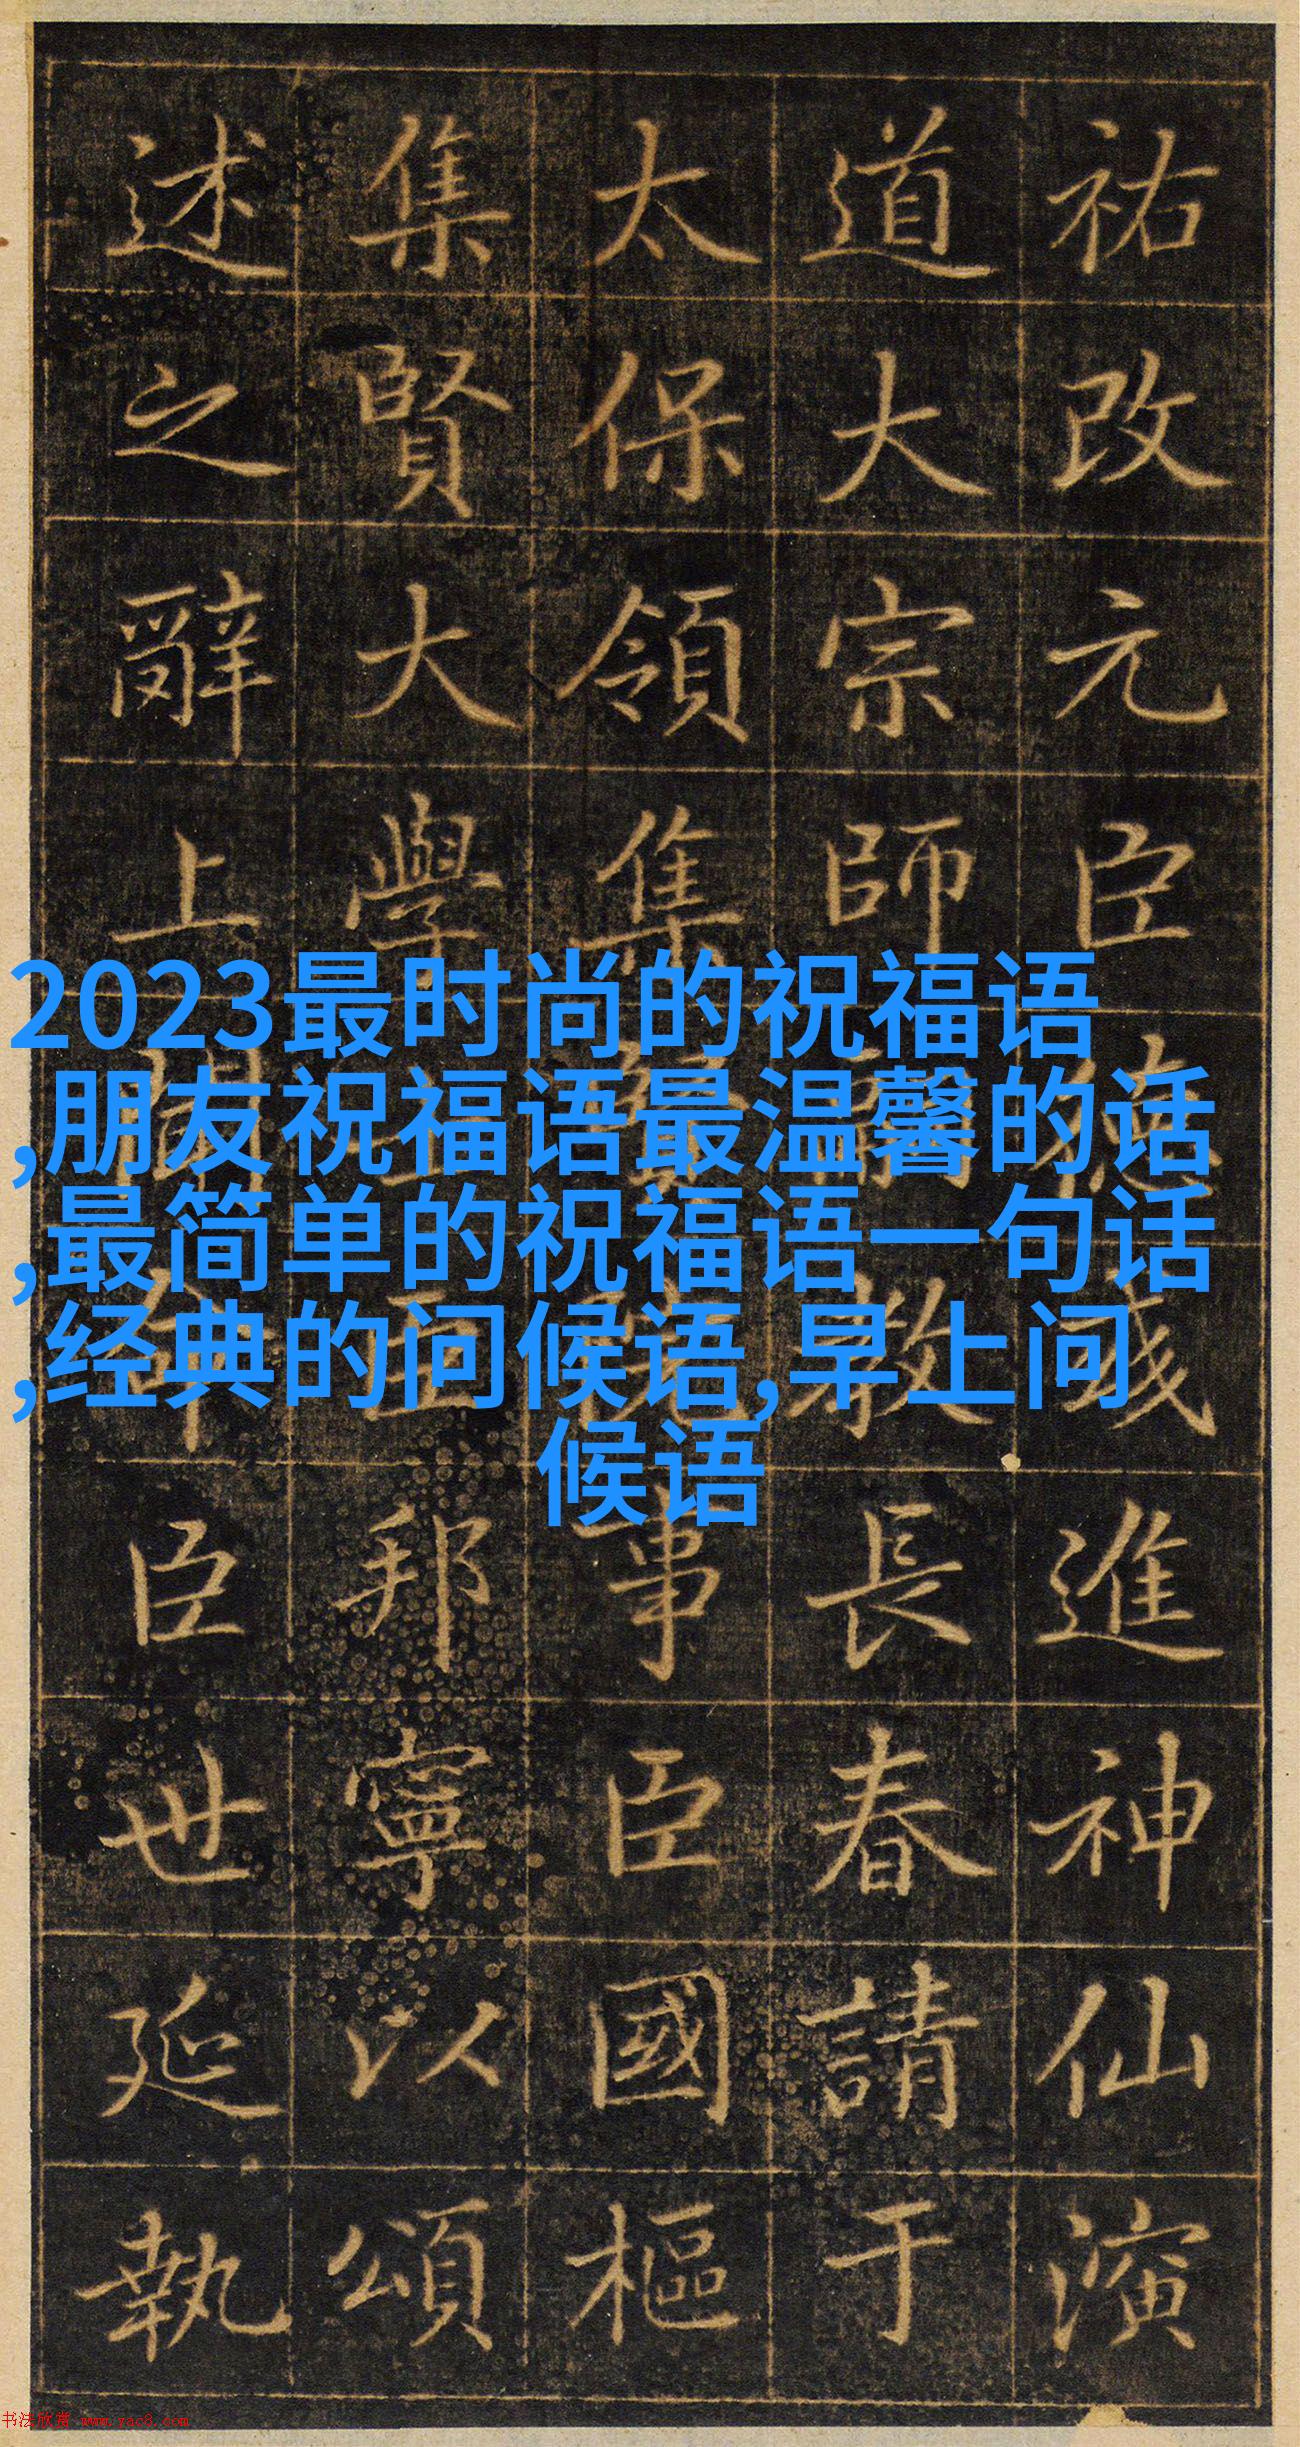 祐改元臣德彧進神仙演
道大宗師教長春請于
太保領集賢院事臣國樞
集賢大學士臣邦寧以頌
述之辭上聞臣世延執
2023最时尚的祝福语
,朋友祝福语最温馨的话
,最简单的祝福语一句话
,经典的问候语,早上问
候语
书法欣赏 www.yac8.com